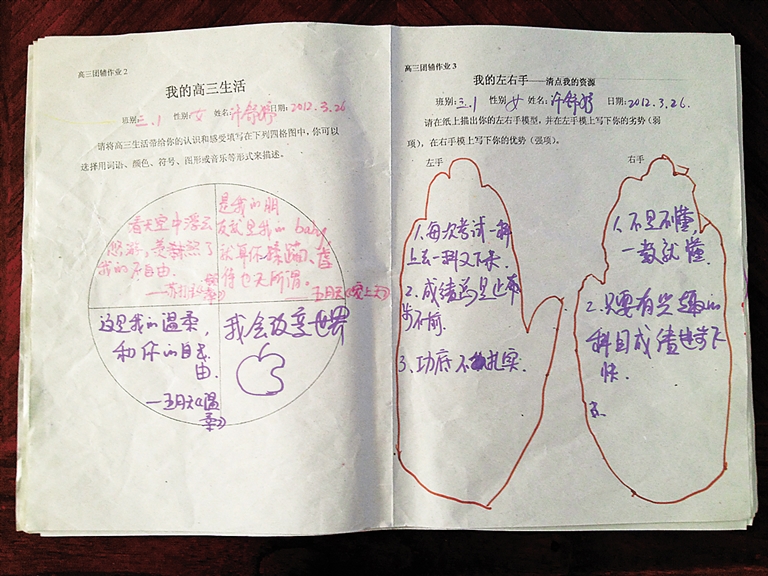 高三团辅作业2
我的高三生活
班别:三.1 性别:女 姓名:许舒婷 日期:2012.3.26
请将高三生活带给你的认识和感受填写在下列四格图中,你可以
选择用词语、颜色、符号、图形或音乐等形式来描述。
看天空中浮云
悠游,
我的不自由.
——苏打绿
是我的朋
友就是我的baby
就算你蹂躏、虐
待也无所谓.
——五月天《爱上天》
这是我的温柔,
和你的自
由.
——五月天《温
柔》
我会改变世界
高三团辅作业3
我的左右手——清点我的资源
班别:三.1 性别:女 姓名:许舒婷 日期:2012.3.26.
请在纸上描出你的左右手模型,并在左手模上写下你的劣势(弱
项),在右手模上写下你的优势(强项)。
左手
1.每次考试一科
上去一科又下来.
2.成绩总是止步
不前.
3.功底不扎实.
右手
1.不是不懂,
一教就懂.
2.只要有兴趣的
科目成绩进步飞
快.
3.